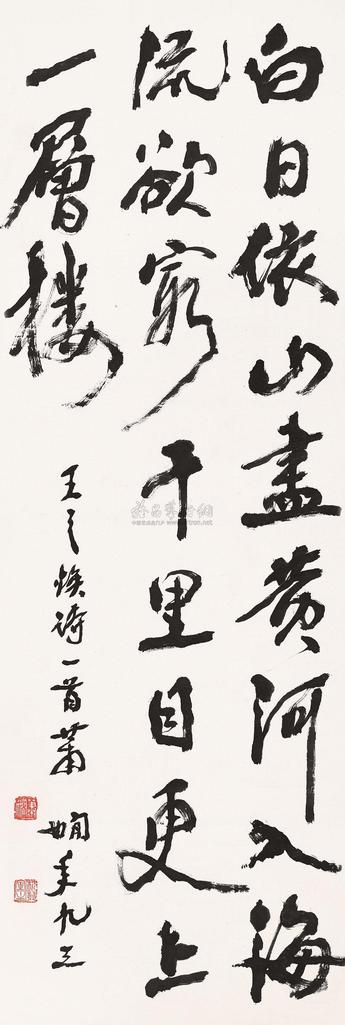 白日依山盡黄河入海
流欲窮千里目更上
一層樓
王之焕詩一首蕭
嫻年九三